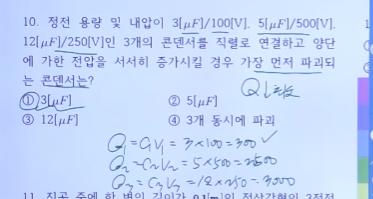 10. 정전 용량 및 내압이 3[μF]/100[V]. 5[μF]/500[V].
12[μF]/250[V]인 3개의 콘덴서를 직렬로 연결하고 양단
에 가한 전압을 서서히 증가시킬 경우 가장 먼저 파괴되
는 콘덴서는?
① 3[μF]
② 5[μF]
③ 12[μF]
④ 3개 동시에 파괴
Q₁=C₁V₁=3×100=300
Q₂=C₂V₂=5×500=2500
Q₃=C₃V₃=12×250=3000